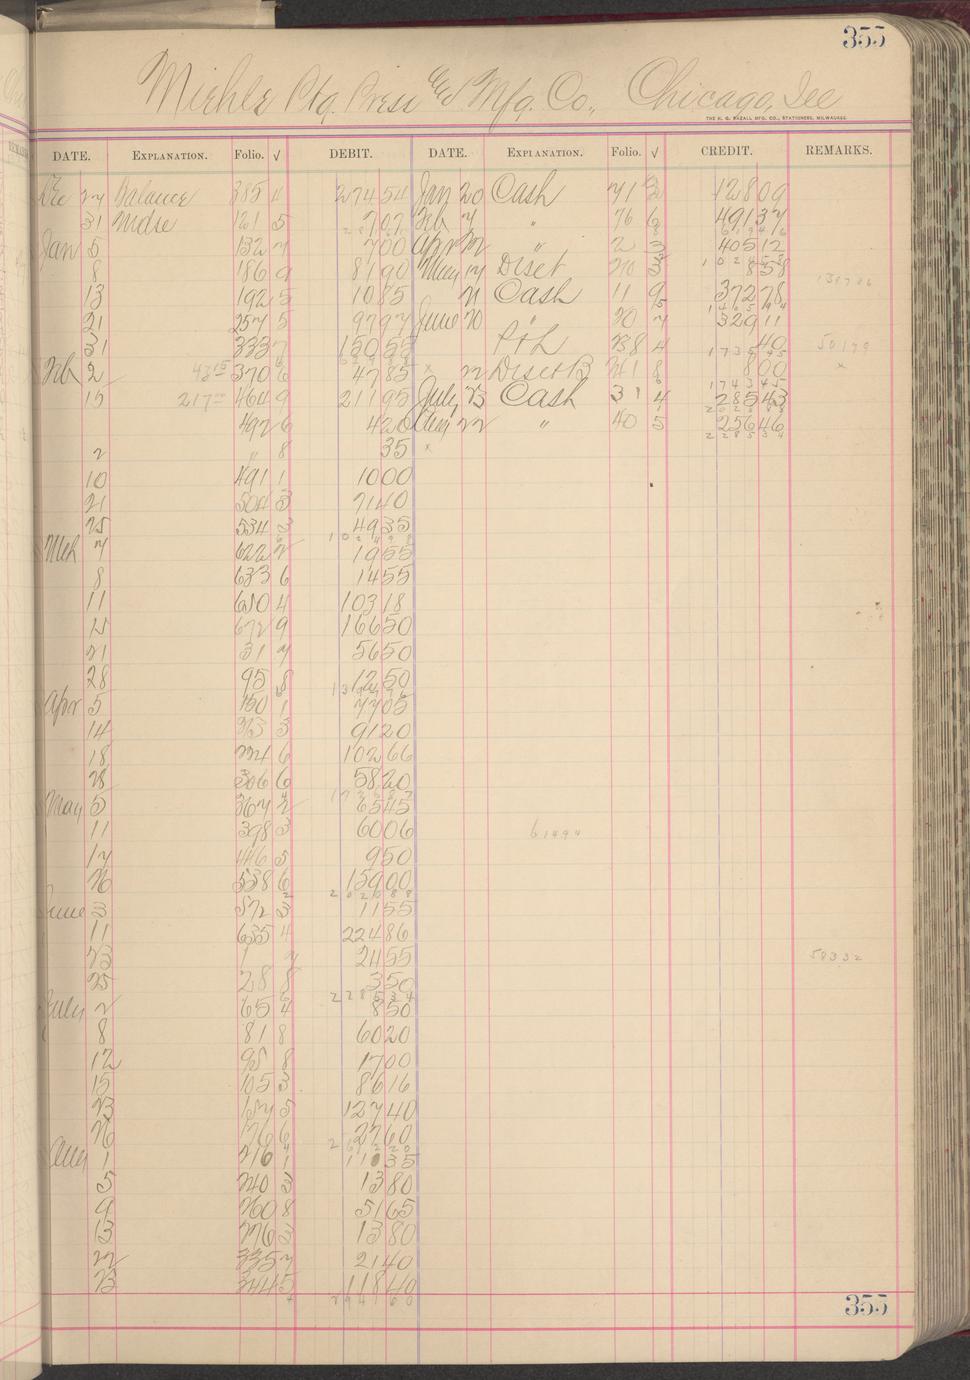 355
Miehle Ptg. Press and Mfg. Co., Chicago, Ill
THE H. G. RAZALL MFG. CO., STATIONERS, MILWAUKEE.
DATE. EXPLANATION. Folio. √ DEBIT. DATE. EXPLANATION. Folio. √ CREDIT. REMARKS.
Dec 27 Balance 385 4 274 54 Jan 20 Cash 71 128 09
31 Mdse 121 5 7 07 Feb 7 " 76 6 491 37
Jan 5 132 7 7 00 Apr 12 " 2 3 405 12
8 186 9 81 90 May 17 Disct 20 3 8 58
13 192 5 10 85 21 Cash 11 9 372 78
21 257 5 97 97 June 20 " 20 7 329 11
31 333 7 150 55 P&L 238 4 40
Feb 2 43 15 370 6 47 85 x 22 Disct B 241 8 8 00
15 217 464 9 211 95 July 23 Cash 31 4 285 43
492 6 4 20 Aug 22 " 40 5 256 46
2 " 8 35 x
10 491 1 10 00
21 504 3 71 40
25 534 3 49 35
Mch 7 622 2 19 55
8 633 6 14 55
11 650 4 103 18
15 672 9 166 50
21 31 7 56 50
28 95 8 12 50
Apr 5 150 1 77 05
14 213 3 91 20
18 224 6 102 66
28 306 6 58 20
May 5 367 2 65 45
11 398 3 60 06 61494
17 446 5 9 50
26 538 6 159 00
June 3 572 3 11 55
11 635 4 224 86
23 1 7 24 55 58332
25 28 8 3 50
228534
July 2 65 4 8 50
8 81 8 60 20
12 95 8 17 00
15 105 3 86 16
23 157 5 127 40
26 176 6 27 60
Aug 1 216 1 110 35
5 240 3 13 80
9 260 8 51 65
13 276 3 13 80
22 335 7 21 40
23 344 5 118 40
294160
355